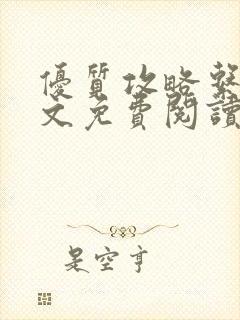 優質攻略繫
文免費閱讀
是空亨